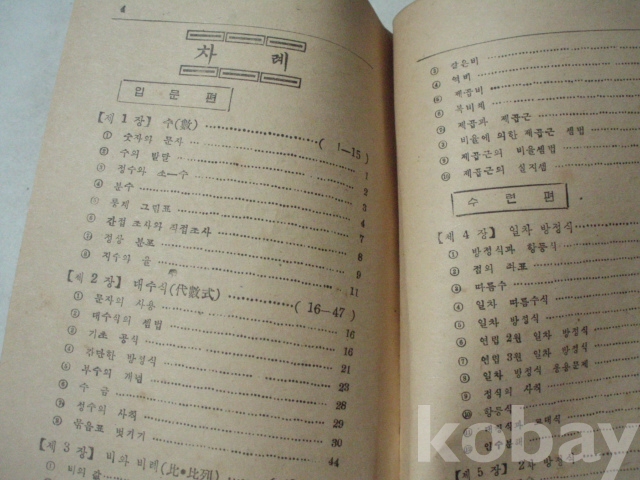 4
차 례
입 문 편
【제 1 장】 수(數) ( 1—15)
① 숫자와 문자 1
② 수의 발달 1
③ 정수와 소수 2
④ 분수 3
⑤ 통계 그림표 4
⑥ 간접 조사와 직접조사 7
⑦ 정상 분포 8
⑧ 지수와 율 9
11
【제 2 장】 대수식(代數式) ( 16—47)
① 문자의 사용 16
② 대수식의 셈법 16
③ 기초 공식 21
④ 간단한 방정식 23
⑤ 부수의 개념 28
⑥ 수 금 29
⑦ 정수의 사칙 30
⑧ 묶음표 벗기기 44
【제 3 장】 비와 비례(比•比列)
① 비의 값
③ 같은비
④ 역비
⑤ 배공비
⑥ 복비례
⑦ 제곱과 제곱근
⑧ 비율에 의한 제곱근 셈법
⑨ 제곱근의 비율셈법
⑩ 제곱근의 실지셈
수 련 편
【제 4 장】 일차 방정식
① 방정식과 항등식
② 점의 좌표
③ 따름수
④ 일차 따름수식
⑤ 일차 방정식
⑥ 연립 2원 일차 방정식
⑦ 연립 3원 일차 방정식
⑧ 일차 방정식 응용문제
⑨ 정식의 사칙
⑩ 항등
【제 5 장】 2차 방정식
kobay